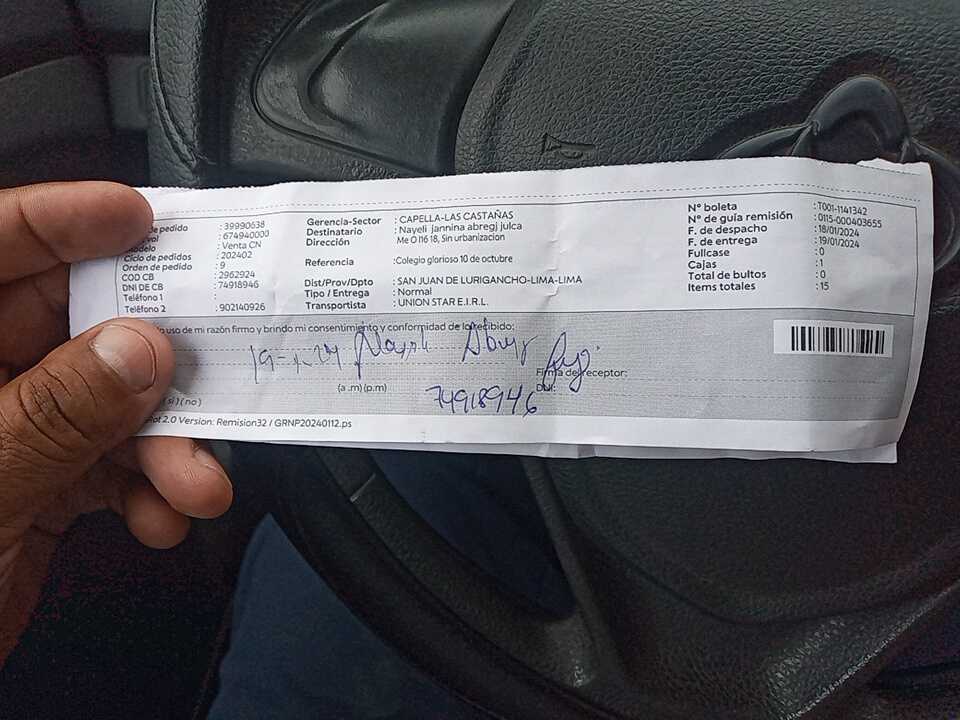 de pedido : 39990638
vol : 674940000
Modelo : Venta CN
Ciclo de pedidos : 202402
Orden de pedido : 9
COD CB : 2962924
DNI DE CB : 74918946
Teléfono 1 :
Teléfono 2 : 902140926
Gerencia-Sector : CAPELLA-LAS CASTAÑAS
Destinatario : Nayeli jannina abregj julca
Dirección Me O lt6 18, Sin urbanizacion
Referencia :Colegio glorioso 10 de octubre
Dist/Prov/Dpto : SAN JUAN DE LURIGANCHO-LIMA-LIMA
Tipo / Entrega : Normal
Transportista : UNION STAR E.I.R.L.
N° boleta : T001-1141342
N° de guía remisión : 0115-000403655
F. de despacho : 18/01/2024
F. de entrega : 19/01/2024
Fullcase : 0
Cajas : 1
Total de bultos : 0
Items totales : 15
uso de mi razón firmo y brindo mi consentimiento y conformidad de lo recibido:
(a.m) (p.m)
Firma del receptor:
DNI:
74918946
( si ) ( no )
2.0 Version: Remision32 / GRNP20240112.ps